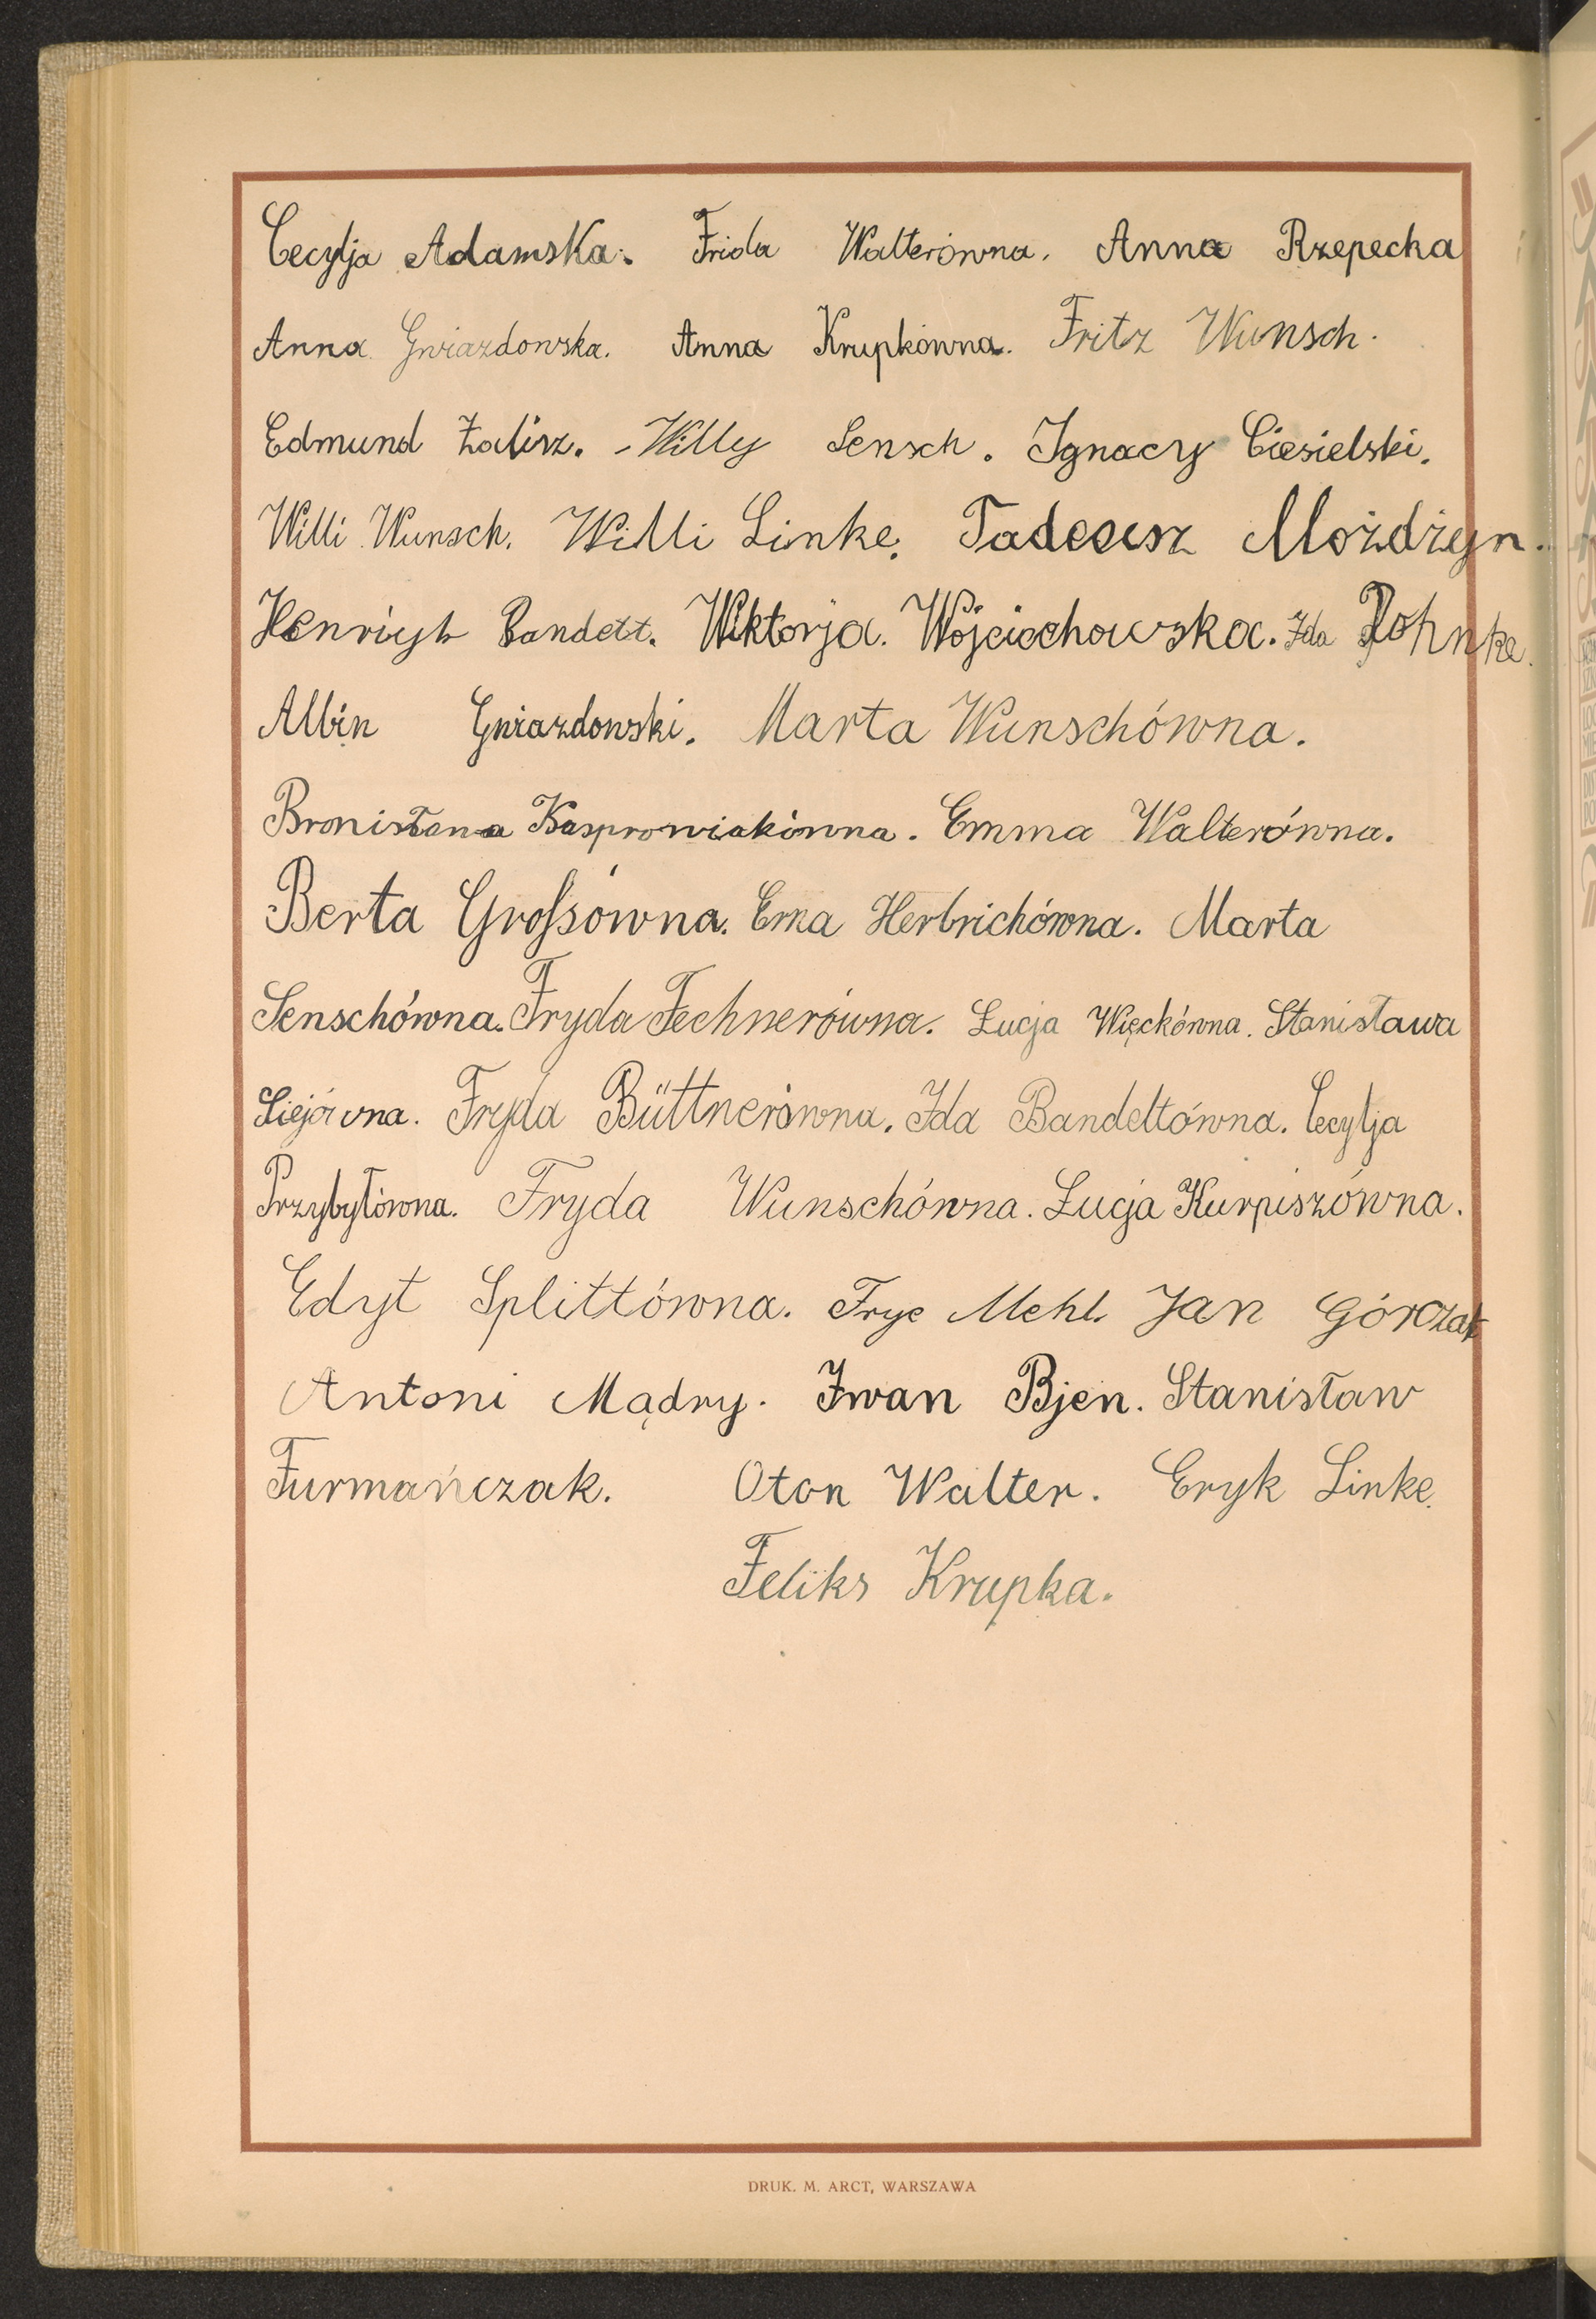 Cecylja Adamska. Frida Walterówna. Anna Rzepecka
Anna Gwiazdowska. Anna Krupkówna. Fritz Wunsch.
Edmund Żalisz. Willy Sensch. Ignacy Ciesielski.
Willi Wunsch. Willi Linke. Tadeusz Możdżyn.
Henryk Bandelt. Wiktorja. Wojciechowska. Ida Rohnke.
Albin Gwiazdowski. Marta Wunschówna.
Bronisława Kasprowiakówna. Emma Walterówna.
Berta Großówna. Erna Herbrichówna. Marta
Senschówna. Fryda Fechnerówna. Łucja Więckówna. Stanisława
Siejówna. Fryda Büttnerówna. Ida Bandeltówna. Cecylja
Przybyłówna. Fryda Wunschówna. Łucja Kurpiszówna.
Edyt Splittówna. Fryc Mehl. Jan Górczak
Antoni Mądry. Iwan Bjen. Stanisław
Furmańczak. Oton Walter. Eryk Linke.
Feliks Krupka.
DRUK. M. ARCT, WARSZAWA